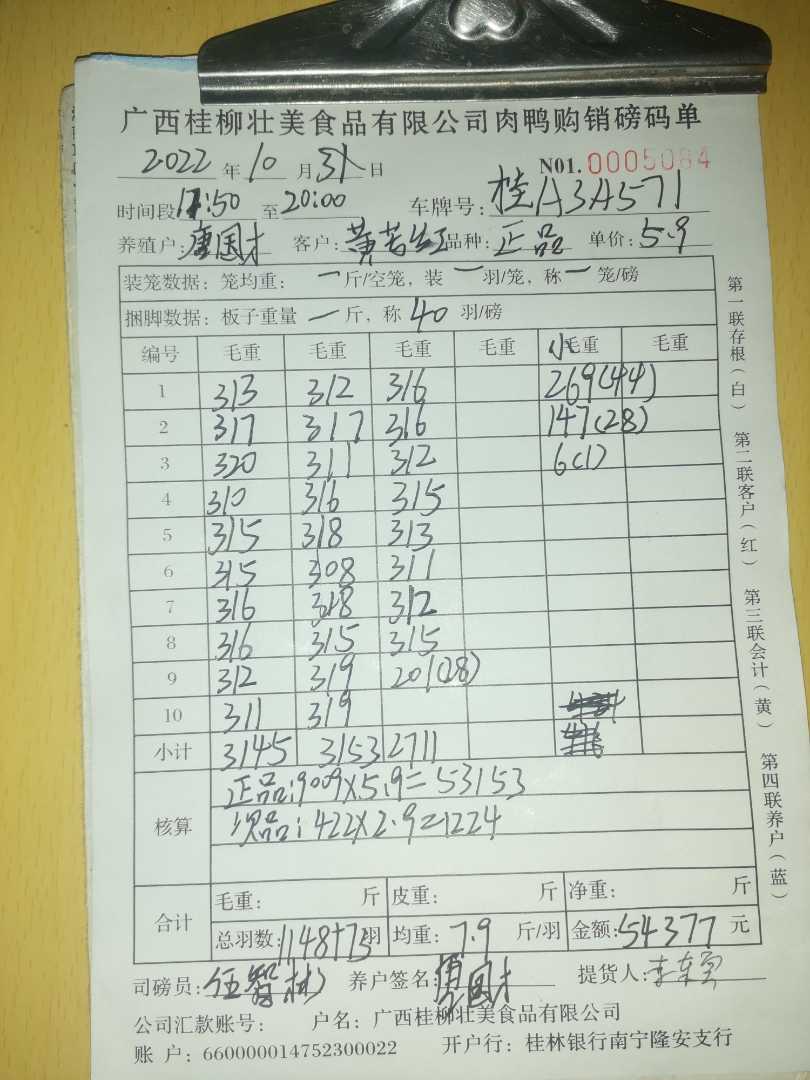 广西桂柳壮美食品有限公司肉鸭购销磅码单
2022 年 10 月 31 日 N01. 0005084
时间段 17:50 至 20:00 车牌号: 桂A3A571
养殖户: 唐国才 客户: 黄若红 品种: 正品 单价: 5.9
装笼数据: 笼均重: 一 斤/空笼, 装 一 羽/笼, 称 一 笼/磅
捆脚数据: 板子重量 一 斤, 称 40 羽/磅
编号 毛重 毛重 毛重 毛重 小毛重 毛重
1 313 312 316 269(44)
2 317 317 316 147(28)
3 320 311 312 6(1)
4 310 316 315
5 315 318 313
6 315 308 311
7 316 318 312
8 316 315 315
9 312 319 201(28)
10 311 319
小计 3145 3153 2711
核算 正品:9009×5.9=53153
次品:422×2.9=1224
合计 毛重: 斤 皮重: 斤 净重: 斤
总羽数: 1148+73 羽 均重: 7.9 斤/羽 金额: 54377 元
司磅员: 伍智彬 养户签名: 唐国才 提货人:
公司汇款账号: 户名: 广西桂柳壮美食品有限公司
账 户: 660000014752300022 开户行: 桂林银行南宁隆安支行
第一联存根(白) 第二联客户(红) 第三联会计(黄) 第四联养户(蓝)